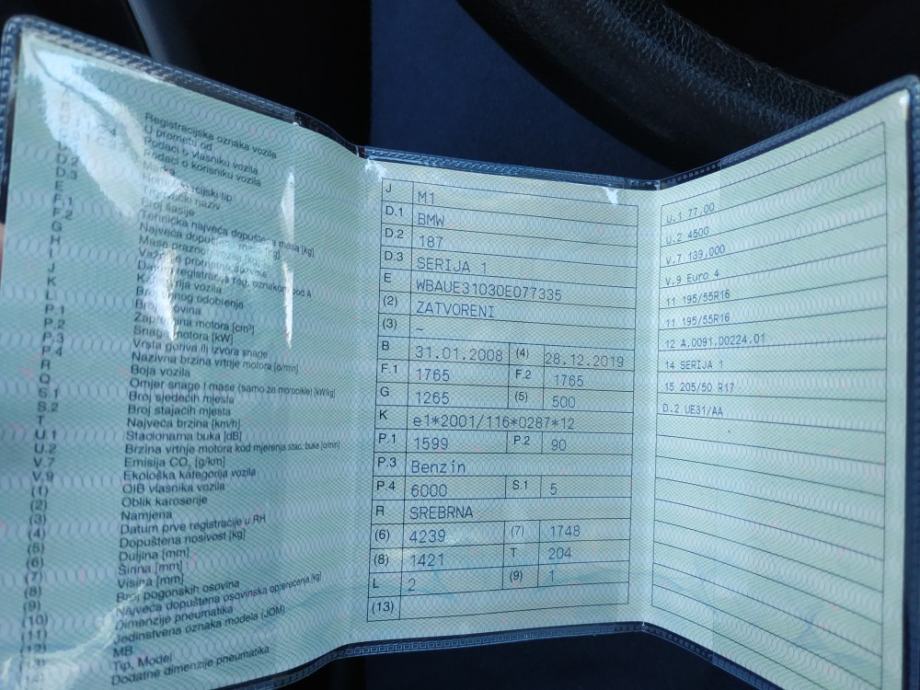 Registracijska oznaka vozila
U prometu od
Podaci o vlasniku vozila
Podaci o korisniku vozila
D.2
D.3
E Trgovački naziv
F.1 Broj šasije
F.2 Tehnička najveća dopuštena masa [kg]
G
H
I
J
K
L Broj osovina
P.1 Zapremina motora [cm³]
P.2 Snaga motora [kW]
P.3 Vrsta goriva ili izvora snage
P.4 Nazivna brzina vrtnje motora [o/min]
R Boja vozila
Q Omjer snage i mase (samo za motocikle) [kW/kg]
S.1 Broj sjedećih mjesta
S.2 Broj stajaćih mjesta
T Najveća brzina [km/h]
U.1 Stacionarna buka [dB]
U.2 Brzina vrtnje motora kod mjerenja stac. buke [o/min]
V.7 Emisija CO₂ [g/km]
V.9 Ekološka kategorija vozila
(1) OIB vlasnika vozila
(2) Oblik karoserije
(3) Namjena
(4) Datum prve registracije u RH
(5) Dopuštena nosivost [kg]
(6) Duljina [mm]
(7) Širina [mm]
(8) Visina [mm]
(9) Broj pogonskih osovina
(10) Najveća dopuštena osovinska opterećenja [kg]
(11) Dimenzije pneumatika
(12) Jedinstvena oznaka modela (JOM)
MB
Tip, Model
Dodatne dimenzije pneumatika
J M1
D.1 BMW
D.2 187
D.3 SERIJA 1
E WBAUE31030E077335
(2) ZATVORENI
(3) –
B 31.01.2008 (4) 28.12.2019
F.1 1765 F.2 1765
G 1265 (5) 500
K e1*2001/116*0287*12
P.1 1599 P.2 90
P.3 Benzin
P.4 6000 S.1 5
R SREBRNA
(6) 4239 (7) 1748
(8) 1421 T 204
L 2 (9) 1
(13)
U.1 77,00
U.2 4500
V.7 139,000
V.9 Euro 4
11 195/55R16
11 195/55R16
12 A.0091.D0224.01
14 SERIJA 1
15 205/50 R17
D.2 UE31/AA